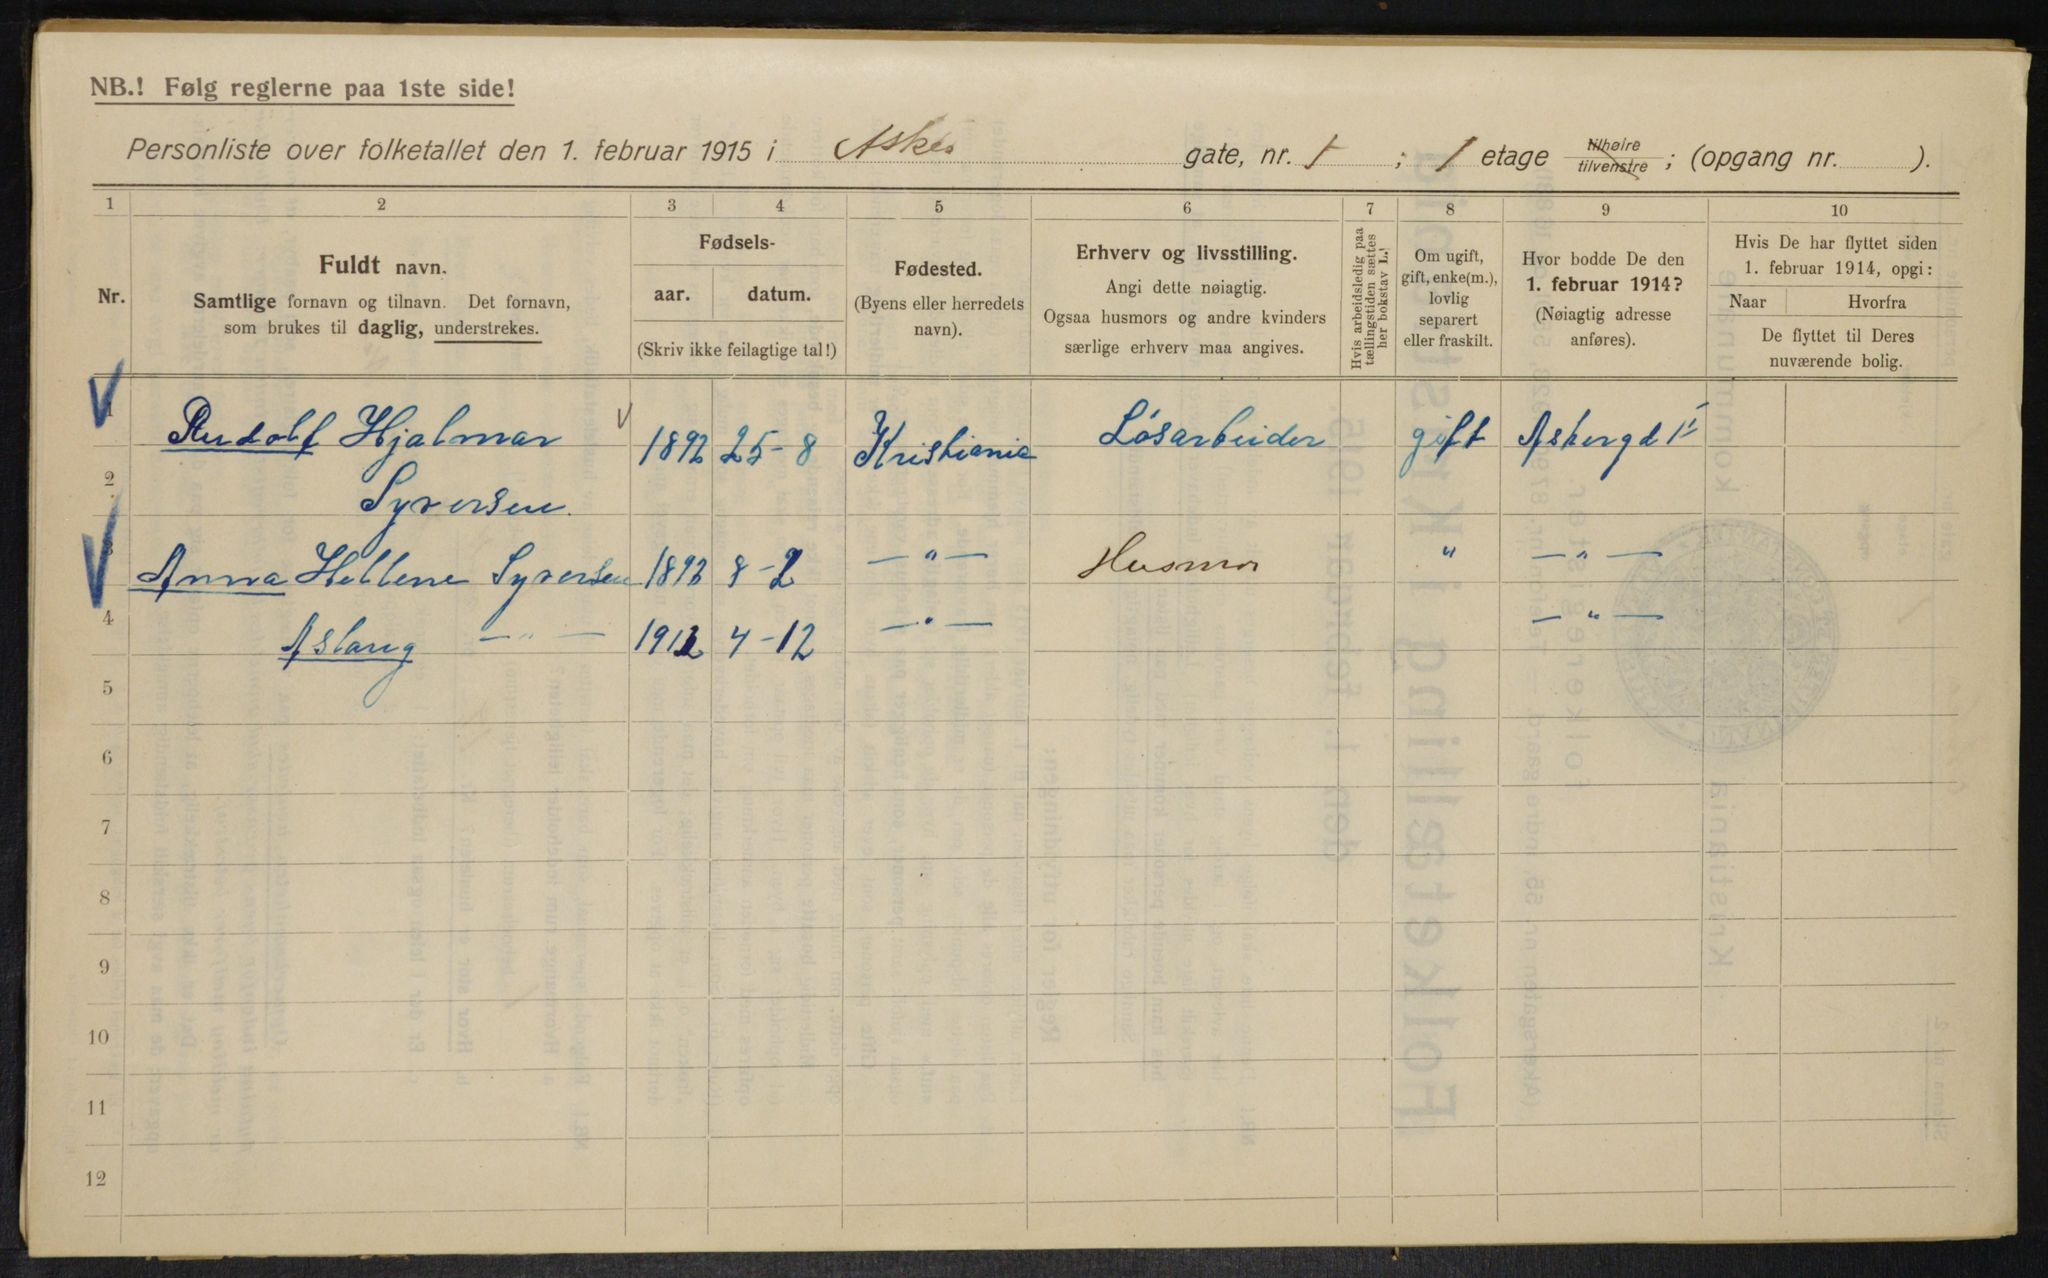 NB.! Følg reglerne paa 1ste side!
Personliste over folketallet den 1. februar 1915 i Asker gate, nr. 1 ; 1 etage tilhøire tilvenstre ; (opgang nr. ).
1 2 3 4 5 6 7 8 9 10
Nr.
Fuldt navn.
Samtlige fornavn og tilnavn. Det fornavn,
som brukes til daglig, understrekes.
Fødsels-
aar. datum.
(Skriv ikke feilagtige tal!)
Fødested.
(Byens eller herredets
navn).
Erhverv og livsstilling.
Angi dette nøiagtig.
Ogsaa husmors og andre kvinders
særlige erhverv maa angives.
Hvis arbeidsledig paa
tællingstiden sættes
her bokstav L.
Om ugift,
gift, enke(m.),
lovlig
separert
eller fraskilt.
Hvor bodde De den
1. februar 1914?
(Nøiagtig adresse
anføres).
Hvis De har flyttet siden
1. februar 1914, opgi:
Naar Hvorfra
De flyttet til Deres
nuværende bolig.
1 Rudolf Hjalmar 1892 25-8 Kristiania Løsarbeider gift Askergd 1
2 Syversen
3 Anna Hellene Syversen 1892 8-2 — " — Husmor " — " —
4 Aslaug — " — 1912 4-12 — " — — " —
5
6
7
8
9
10
11
12